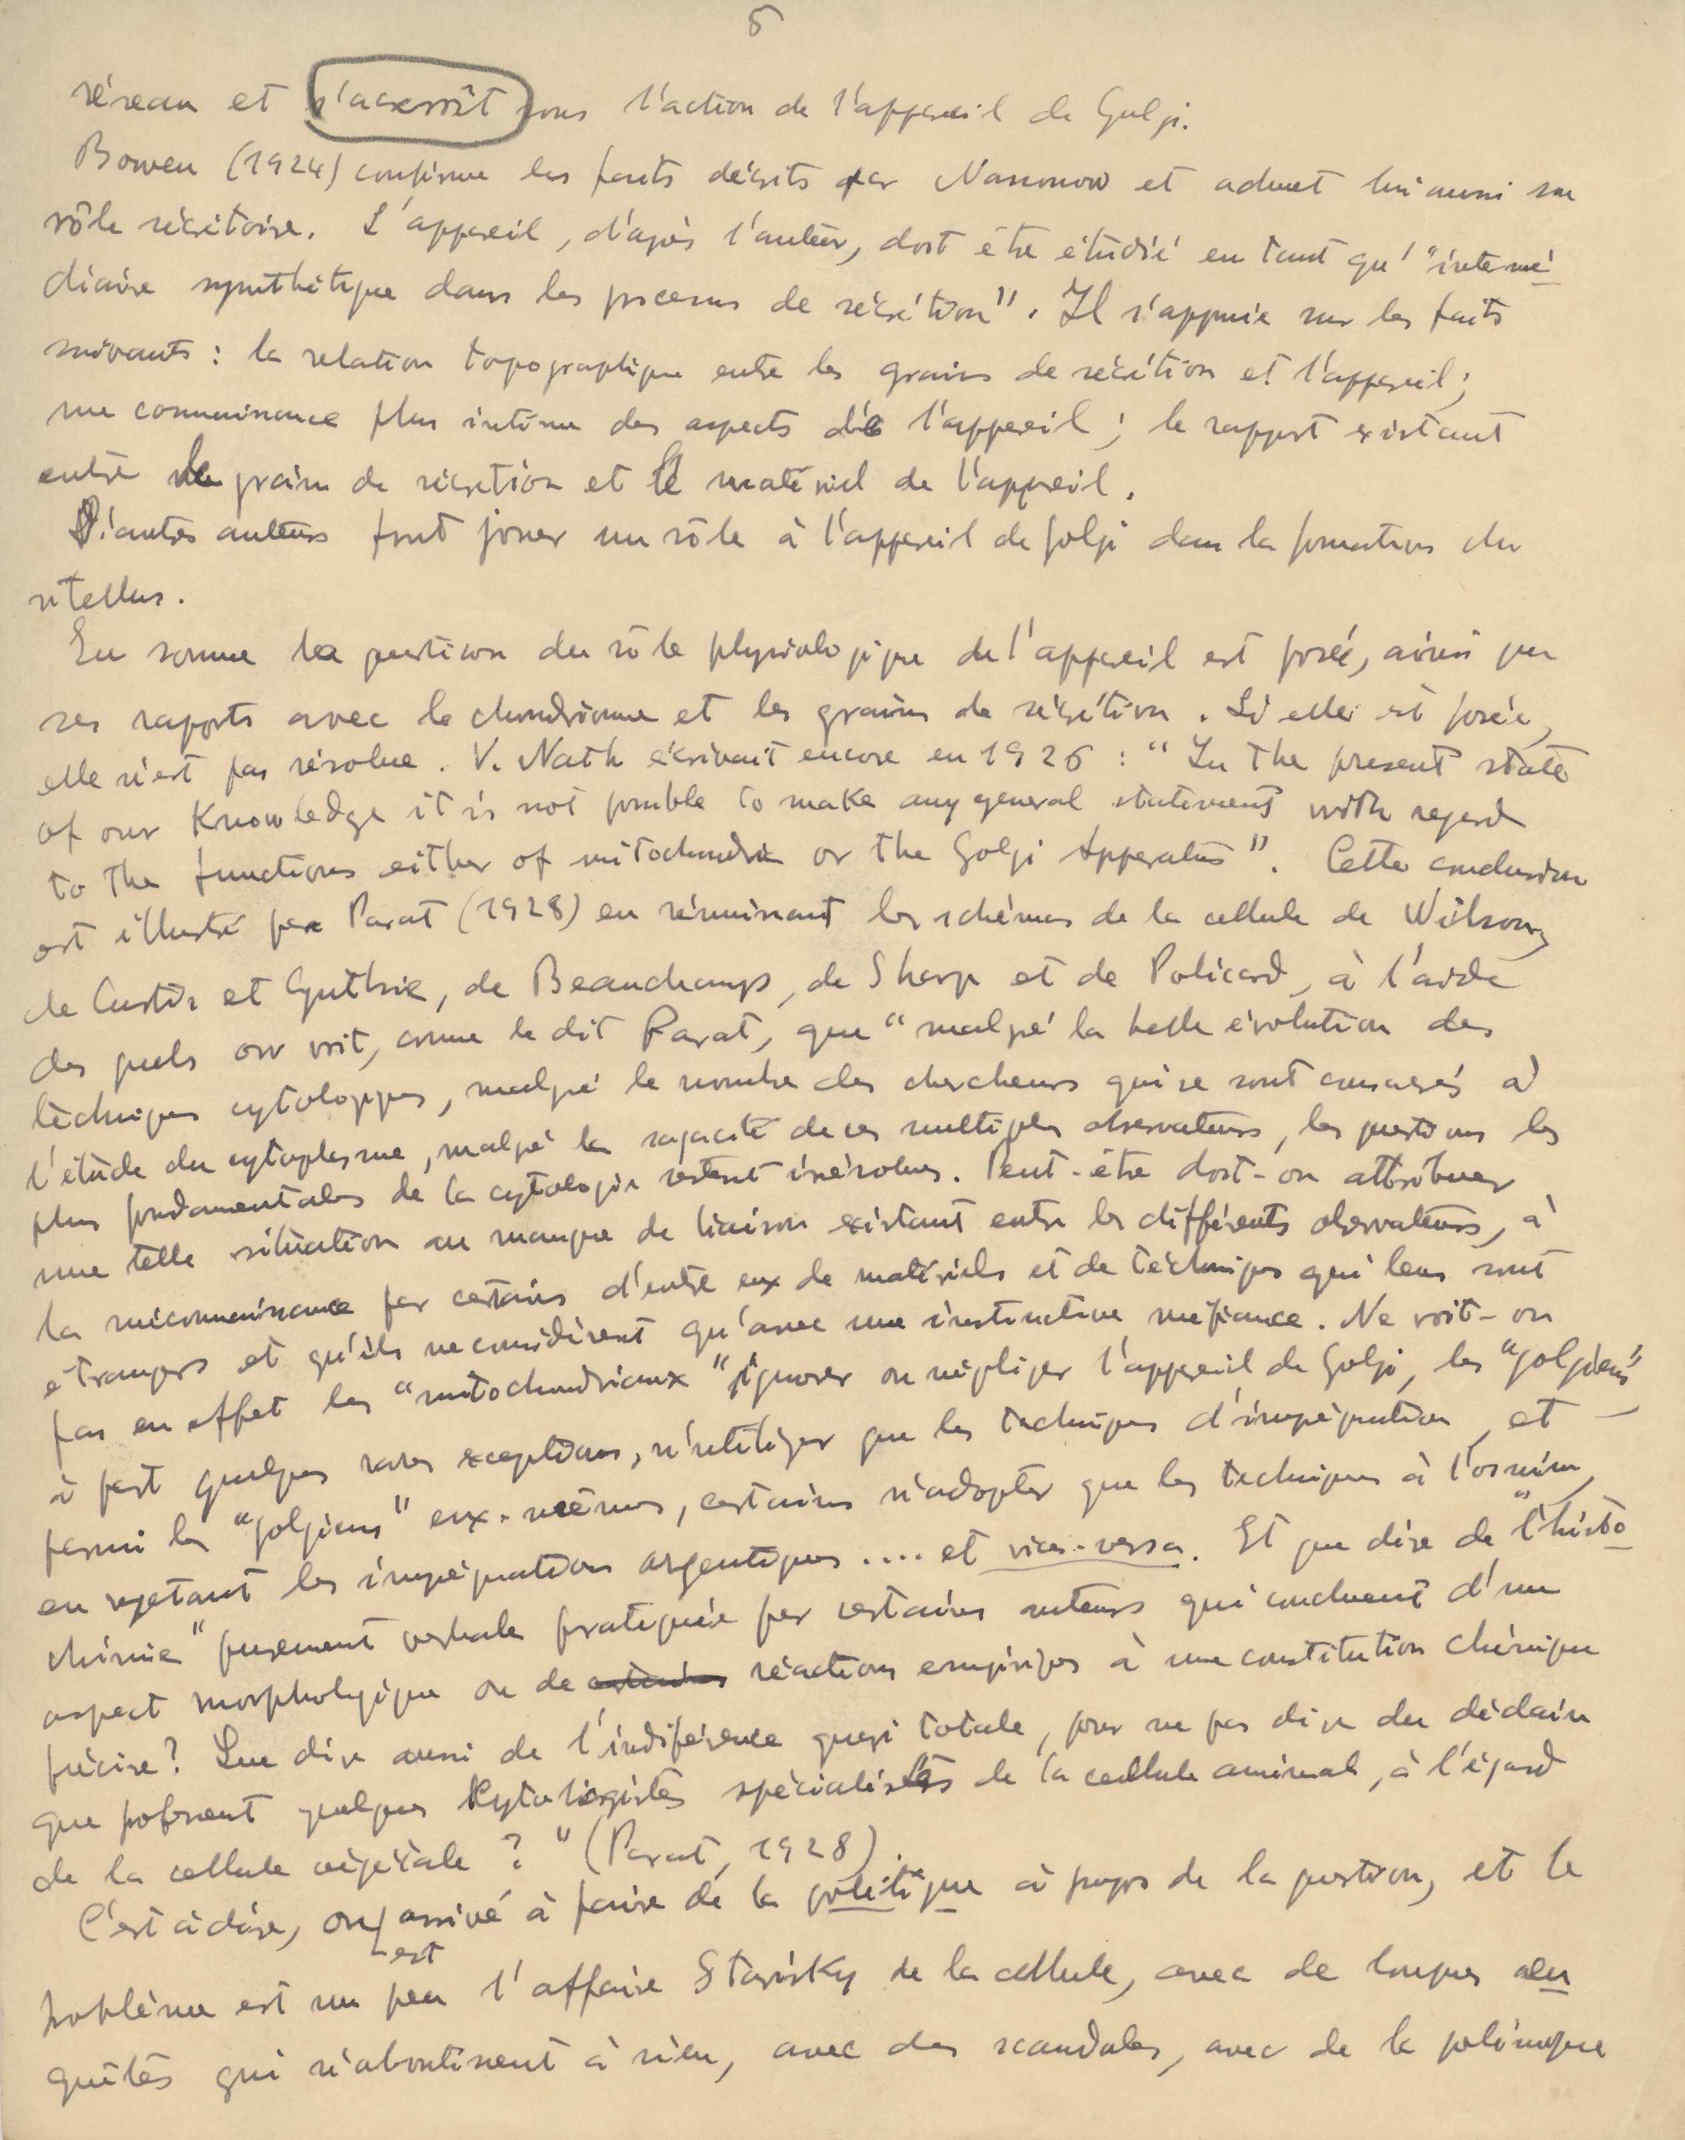 5
réseau et s'accroît sous l'action de l'appareil de Golgi.
Bowen (1924) confirme les faits décrits par Nassonow et admet lui aussi son
rôle sécrétoire. L'appareil, d'après l'auteur, doit être étudié en tant qu' "intermé
diaire synthétique dans les processus de sécrétion". Il s'appuie sur les faits
suivants : la relation topographique entre les grains de sécrétion et l'appareil ;
une connaissance plus intime des aspects de l'appareil ; le rapport existant
entre le grain de sécrétion et le matériel de l'appareil.
D'autres auteurs font jouer un rôle à l'appareil de golgi dans la formation du
vitellus.
En somme la question du rôle physiologique de l'appareil est posée, ainsi que
ses rapports avec le chondriome et les grains de sécrétion. Si elle est posée,
elle n'est pas résolue. V. Nath écrivait encore en 1926 : "In the present state
of our Knowledge it is not possible to make any general statement with regard
to the functions either of mitochondria or the Golgi Apparatus". Cette conclusion
est illustré par Parat (1928) en réunissant les schémas de la cellule de Wilson,
de Curtis et Guthrie, de Beauchamp, de Sharp et de Policard, à l'aide
des quels on voit, comme le dit Parat, que "malgré la belle évolution des
techniques cytologiques, malgré le nombre des chercheurs qui se sont consacrés à
l'étude du cytoplasme, malgré la sagacité de ces multiples observateurs, les questions les
plus fondamentales de la cytologie restent irrésolues. Peut-être doit-on attribuer
une telle situation au manque de liaison existant entre les différents observateurs, à
la méconnaissance par certains d'entre eux de matériels et de techniques qui leur sont
étrangers et qu'ils ne considèrent qu'avec une instinctive méfiance. Ne voit-on
pas en effet les "mitochondriaux" ignorer ou négliger l'appareil de Golgi, les "golgiens"
à part quelques rares exceptions, n'utiliser que les techniques d'imprégnation, et
parmi les "golgiens" eux-mêmes, certains n'adopter que les techniques à l'osmium,
en rejetant les imprégnations argentiques .... et vice-versa. Et que dire de "l'histo
chimie" purement verbale pratiquée par certains auteurs qui concluent d'un
aspect morphologique ou de certaines réactions empiriques à une constitution chimique
précise ? Que dire aussi de l'indiférence quasi totale, pour ne pas dire du dédain
que professent quelques cytologistes spécialistes de la cellule animale, à l'égard
de la cellule végétale ?" (Parat, 1928).
C'est à dire, on est arrivé à faire de la politique à propos de la question, et le
problème est un peu l'affaire Stavisky de la cellule, avec de longues en
quêtes qui n'aboutissent à rien, avec des scandales, avec de la polémique